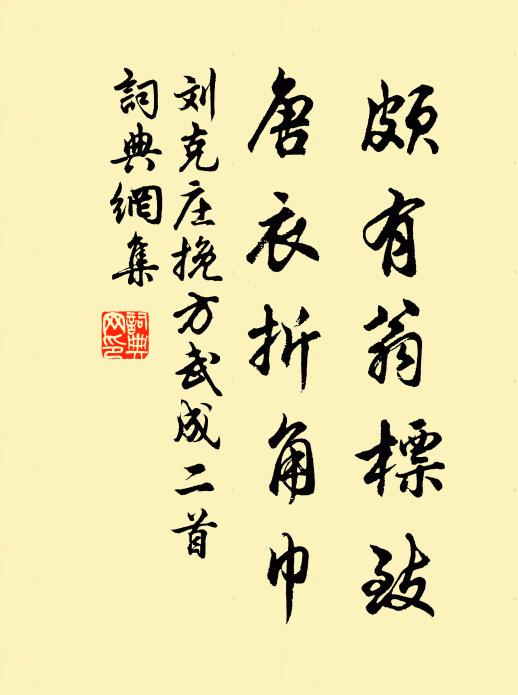 颇有翁标致
唐衣折角巾
刘克庄挽方武成二首
詞典網集
詞典网印